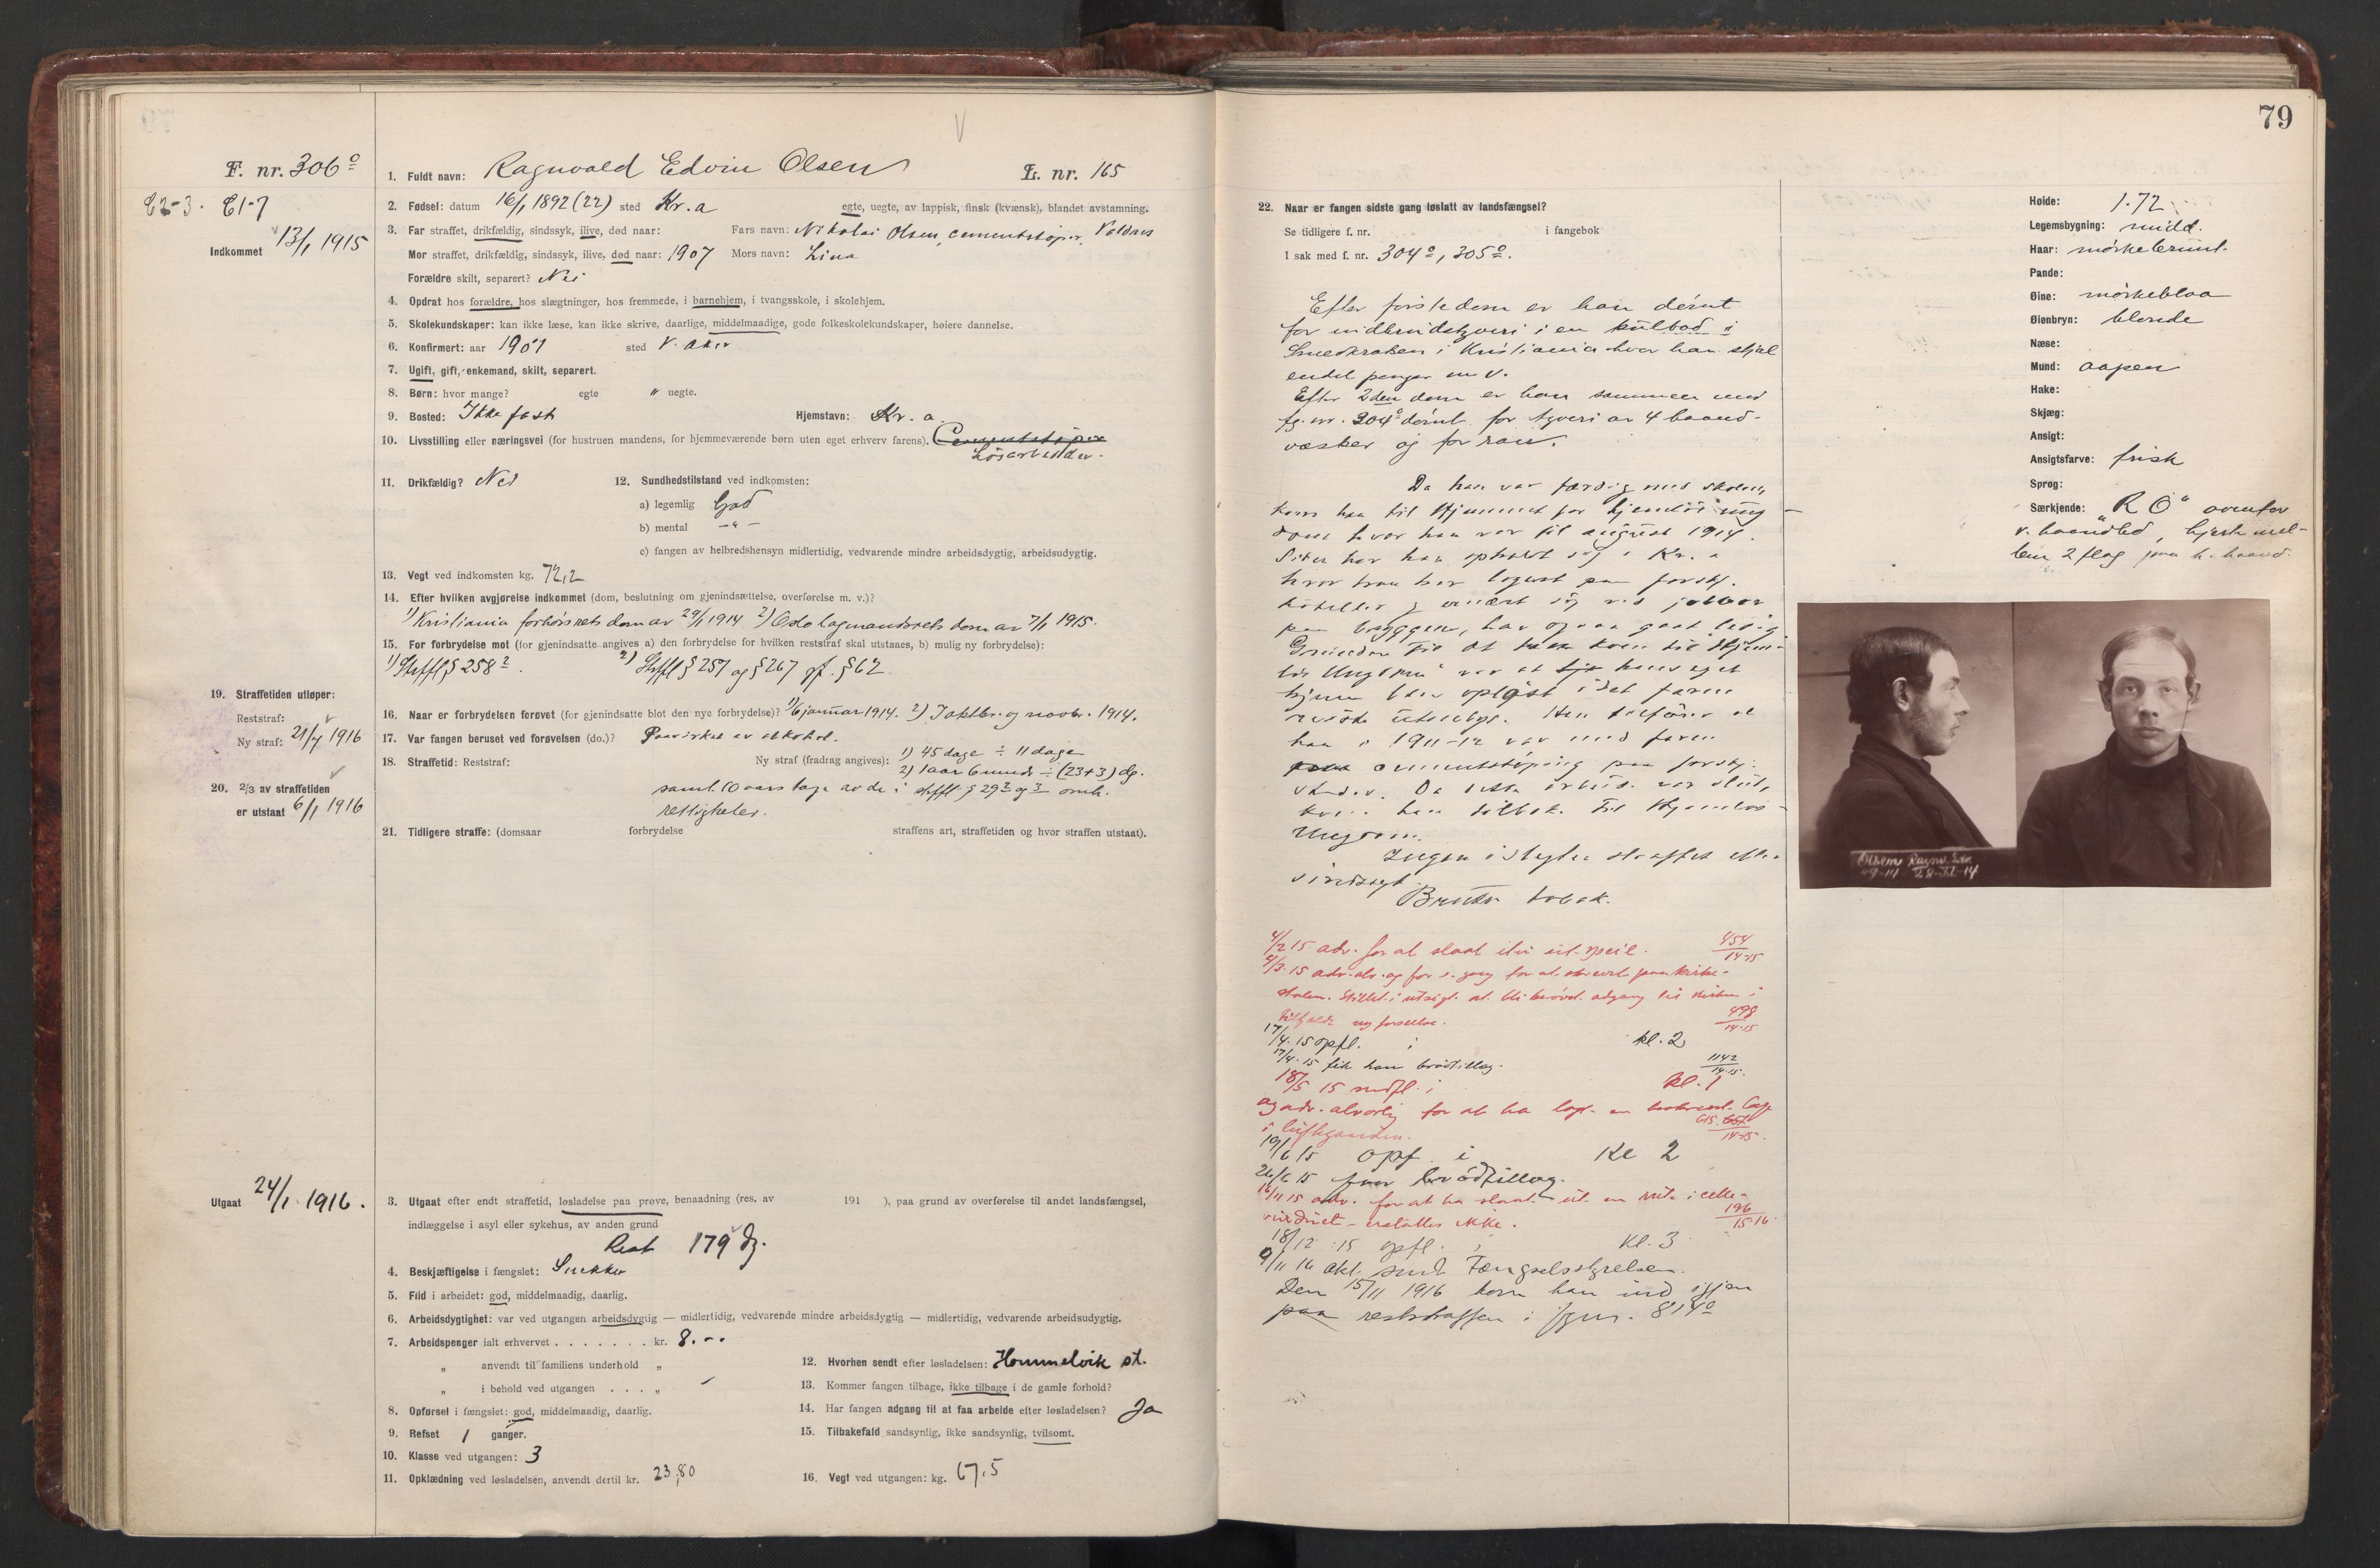 79
F. nr. 306º
1. Fuldt navn: Ragnvald Edvin Olsen
L. nr. 165
2. Fødsel: datum 16/1 1892 (22) sted Kr.a egte, uegte, av lappisk, finsk (kvænsk), blandet avstamning.
Indkommet 13/1 1915
3. Far straffet, drikfældig, sindssyk, ilive, død naar: Fars navn: Nikolai Olsen, cementstøper,
Mor straffet, drikfældig, sindssyk, ilive, død naar: 1907 Mors navn: Lina
Forældre skilt, separert? Nei
4. Opdrat hos forældre, hos slægtninger, hos fremmede, i barnehjem, i tvangsskole, i skolehjem.
5. Skolekundskaper: kan ikke læse, kan ikke skrive, daarlige, middelmaadige, gode folkeskolekundskaper, høiere dannelse.
6. Konfirmert: aar 1907 sted V. Aker
7. Ugift, gift, enkemand, skilt, separert.
8. Børn: hvor mange? egte " uegte.
9. Bosted: Ikke fast Hjemstavn: Kr.a.
10. Livsstilling eller næringsvei (for hustruen mandens, for hjemmeværende børn uten eget erhverv farens). Cementstøper
Løsarbeider.
11. Drikfældig? Nei 12. Sundhedstilstand ved indkomsten:
a) legemlig God
b) mental -"-
c) fangen av helbredshensyn midlertidig, vedvarende mindre arbeidsdygtig, arbeidsudygtig.
13. Vegt ved indkomsten kg. 72,2
14. Efter hvilken avgjørelse indkommet (dom, beslutning om gjenindsættelse, overførelse m. v.)?
1) Kristiania forhørsrets dom av 29/1 1914 2) Oslo lagmandsrets dom av 7/1 1915.
15. For forbrydelse mot (for gjenindsatte angives a) den forbrydelse for hvilken reststraf skal utstaaes, b) mulig ny forbrydelse):
1) Strfl § 258² 2) Strfl § 257 og § 267 jf. § 62.
19. Straffetiden utløper:
Reststraf:
Ny straf: 21/7 1916
16. Naar er forbrydelsen forøvet (for gjenindsatte blot den nye forbrydelse)? 1) 6 januar 1914. 2) I oktbr. og novbr. 1914.
17. Var fangen beruset ved forøvelsen (do.)? Paavirket av alkohol.
18. Straffetid: Reststraf: Ny straf (fradrag angives): 1) 45 dage ÷ 11 dage
2) 1 aar 6 mnds ÷ (23+3) dg.
samt 10 aars tap av de i strfl § 29² og ³ omh.
rettigheter.
20. 2/3 av straffetiden
er utstaat 6/1 1916
21. Tidligere straffe: (domsaar forbrydelse straffens art, straffetiden og hvor straffen utstaat).
Utgaat 24/1 1916.
3. Utgaat efter endt straffetid, løsladelse paa prøve, benaadning (res. av 191 ), paa grund av overførelse til andet landsfængsel,
indlæggelse i asyl eller sykehus, av anden grund
Rest 179 dg.
4. Beskjæftigelse i fængslet: Snekker
5. Flid i arbeidet: god, middelmaadig, daarlig.
6. Arbeidsdygtighet: var ved utgangen arbeidsdygtig — midlertidig, vedvarende mindre arbeidsdygtig — midlertidig, vedvarende arbeidsudygtig.
7. Arbeidspenger ialt erhvervet . . . . . . . kr. 8.--
" anvendt til familiens underhold "
" i behold ved utgangen . . . "
8. Opførsel i fængslet: god, middelmaadig, daarlig.
9. Refset 1 ganger.
10. Klasse ved utgangen: 3
11. Opklædning ved løsladelsen, anvendt dertil kr. 23,80
12. Hvorhen sendt efter løsladelsen: Hommelvik st.
13. Kommer fangen tilbage, ikke tilbage i de gamle forhold?
14. Har fangen adgang til at faa arbeide efter løsladelsen? Ja
15. Tilbakefald sandsynlig, ikke sandsynlig, tvilsomt.
16. Vegt ved utgangen: kg. 67,5
22. Naar er fangen sidste gang løslatt av landsfængsel?
Se tidligere f. nr. i fangebok
I sak med f. nr. 304º, 305º.
Efter første dom er han dømt
for indbrudstyveri i en kulbod i
i Kristiania hvor han stjal
endel penger m. v.
Efter 2den dom er han sammen med
fg. nr. 304º dømt for tyveri av 4 haand-
væsker og for ran.
Da han var færdig med skolen,
kom han til Hjemmet for hjemløs ung-
dom hvor han var til august 1914.
Siden har han opholdt sig i Kr.a
hvor han har logert paa forskj.
hoteller og ernært sig ved
paa bryggen, har ogsaa gaat ledig.
Grunden til at han kom til Hjem-
løs Ungdom var at hans eget
hjem blev opløst idet faren
reiste utenbys. Han tilføier at
han i 1911-12 var med faren
paa cementstøping paa forskj.
steder. Da dette arbeide var slut,
kom han tilbake til Hjemløs
Ungdom.
Ingen i slegten straffet eller
sindssyk.
Bruker tobak.
4/2 15 adv. for at slaat itu et speil. 454/14-15
stolen. Stillet i utsigt at bli berøvet adgang til kirken i
tilfælde ny forseelse. 498/14-15
17/4. 15 opfl. i kl. 2
17/4. 15 fik han brødtillæg. 1142/14-15.
18/5 15 nedfl. i kl. 1
og adv. alvorlig for at ha
i luftgaarden. 615/14-15.
19/6 15 opf. i Kl 2
26/6 15 faar brødtillæg.
16/11 15 adv. for at ha slaat ut en rute i celle-
vinduet - erstattes ikke. 196/15-16
18/12 15 opfl. i Kl. 3
9/11 16 akt. sendt Fængselsstyrelsen.
Den 15/11 1916 kom han ind igjen
paa reststraffen i fgnr. 814º
Høide: 1.72
Legemsbygning: midd.
Haar: mørkebrunt.
Pande:
Øine: mørkeblaa
Øienbryn: blonde
Næse:
Mund: aapen
Hake:
Skjæg:
Ansigt:
Ansigtsfarve: frisk
Sprog:
Særkjende: "R O" ovenfor
v. haandled, hjerte mel-
lem 2 flag paa h. haand.
Olsen Ragnv. Edv.
28-XI-14